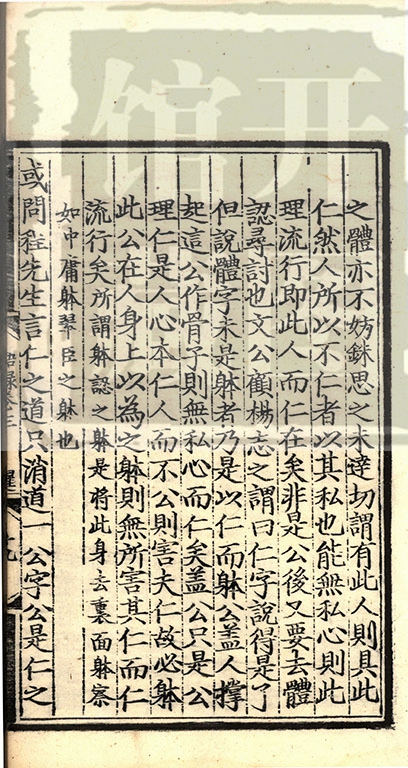 之體亦不妨銖思之未達切謂有此人則具此
仁然人所以不仁者以其私也能無私心則此
理流行即此人而仁在矣非是公後又要去體
認尋討也文公顧楊志之謂曰仁字說得是了
但說體字未是躰者乃是以仁而躰公盖人撑
起這公作骨子則無私心而仁矣盖公只是公
理仁是人心本仁人而不公則害夫仁故必躰
此公在人身上以為之躰則無所害其仁而仁
流行矣所謂躰認之躰是將此身去裏面躰察
如中庸躰羣臣之躰也
或問程先生言仁之道只消道一公字公是仁之